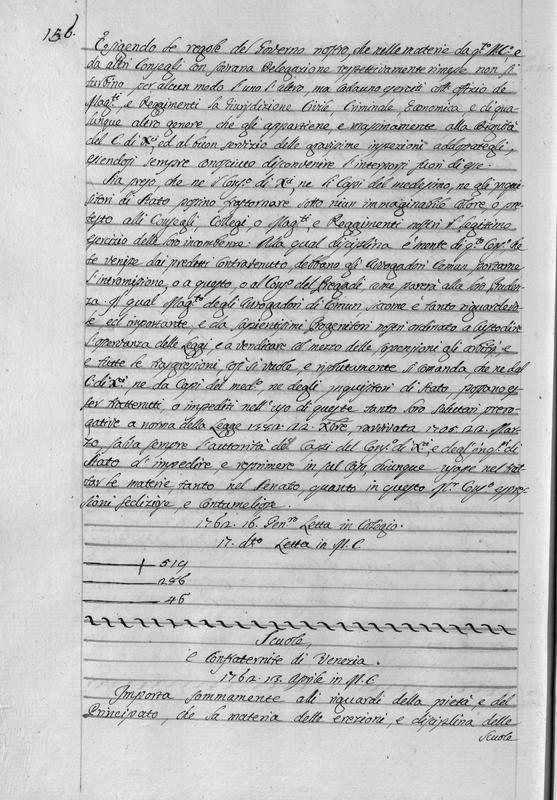 156.
Esigendo le regole del Governo nostro, che nelle materie da q.to M. C. e
da altri Consegli con sovrana Delegazione respettivamente rimesse non si
turbino per alcun modo l'uno l'altro, ma cadauno eserciti coll' offizio de
Mag.ti, e Reggimenti la Giurisdizione Civile, Criminale, Economica e di qua-
lunque altro genere che gli appartiene, e massimamente alla Dignità
del C. di X.ci ed al buon servizio delle gravissime inspezioni addossategli
essendosi sempre conosciuto disconvenire l'interporsi fuori di esse.
Sia preso, che ne il Cons.o di X.ci ne li Capi del medesimo, ne gli Inqui-
sitori di Stato possino frastornare sotto niun immaginabile colore, o pre-
testo alli Consegli, Collegi, o Mag.ti e Reggimenti nostri il legittimo
esercizio delle loro incombenze: Alla qual disciplina e mente di q.to Cons.o che
se venisse dai predetti contravenuto, debbano gli Avogadori Comun portarne
l'intromissione, o a questo, o al Cons.o del Pregadi, come parerà alla loro Pruden-
za. Il qual Mag.to degli Avogadori di Comun, siccome è tanto riguardevo-
le ed importante, e da sapientissimi Progenitori nostri ordinato a custodire
l'osservanza delle Leggi, e a vendicare col mezzo delle sospensioni gli arbitrj, e
e tutte le trasgressioni, così si vuole, e risolutamente si comanda, che ne dal
C. di X.ci ne da Capi del med.o ne degli Inquisitori di Stato, possano es-
ser trattenuti, o impediti nell'uso di queste tanto loro salutari prero-
gative a norma della Legge 1582. 22. Xbre ravvivata 1728. 22. Mar-
zo, salva sempre l'autorità dei Capi del Cons.o di X.ci, e degl'Inq.ri di
Stato d'impedire e reprimere in sul capo chiunque usasse nel trat-
tar le materie, tanto nel Senato, quanto in questo M.r Cons.o espres-
sioni sediziose, e contumeliose.
1762. 16. Gen.ro Letta in Collegio.
17. d.to Letta in M. C.
+ 519
286
46
Scuole,
e Confraternite di Venezia.
1762. 13. Aprile in M. C.
Importa sommamente alli riguardi della pietà, e del
Principato, che la materia delle erezioni, e disciplina delle
Scuole